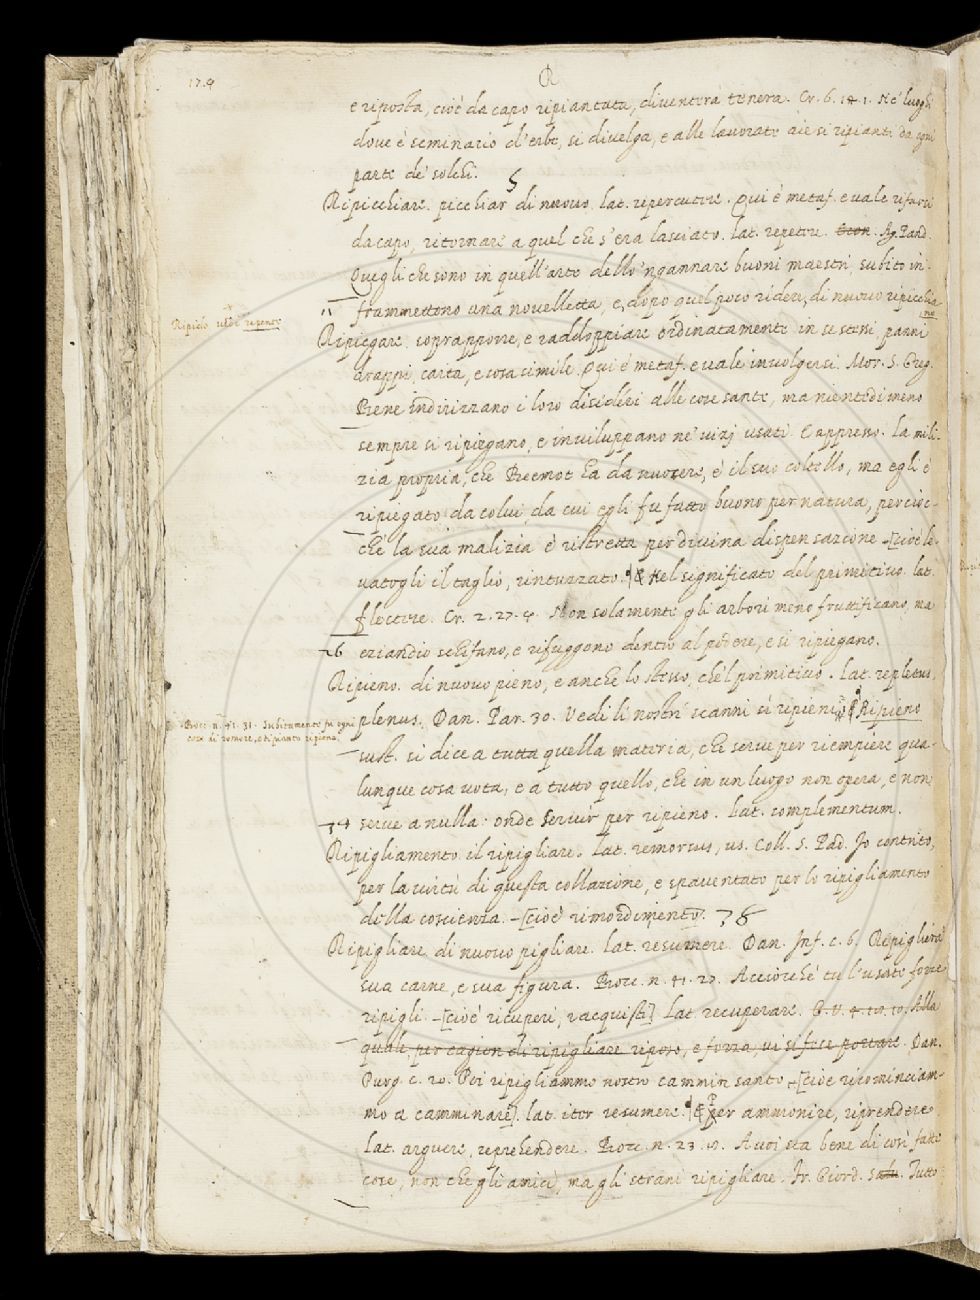 174
R
e riposta, cioè da capo ripiantata, diventerà tenera. Cr. 6. 14. 1. Ne' luoghi
dove è seminario d'erbe, si divelga, e alle lavorate aie si ripianti da ogni
parte de' solchi.
Ripicchiare. picchiar di nuovo. lat. repercutere. Qui è metaf. e vale rifarsi
da capo, ritornare a quel che s'era lasciato. lat. repetere. Ag. Pand.
Quegli che sono in quell'arte dello 'ngannare buoni maestri, subito in-
frammettono una novelletta, e, dopo quel poco ridere, di nuovo ripicchia
no
Ripido vedi repente
Ripiegare. soprapporre, e raddoppiare ordinatamente in se stessi panni
drappi, carta, e cosa simile. Qui è metaf. e vale involgersi. Mor. S. Greg.
Bene indirizzano i loro desiderj alle cose sante, ma nientedimeno
sempre si ripiegano, e inviluppano ne' vizj usati. E appresso. La mili-
zia propria, che Beemot ha da nuocere, è il suo coltello, ma egli è
ripiegato da colui, da cui egli fu fatto buono per natura, percioc-
chè la sua malizia è ristretta per divina dispensazione -[cioè le-
vatogli il taglio, rintuzzato. ¶ & Nel significato del primitivo. lat.
flectere. Cr. 2. 27. 4. Non solamente gli arbori meno fruttificano, ma
26 eziandio schifano, e rifuggono dentro al podere, e si ripiegano.
Ripieno. di nuovo pieno, e anche lo stesso, che 'l primitivo. Lat. repletus,
plenus. Dan. Par. 30. Vedi li nostri scanni sì ripieni. ¶ Ripieno
Bocc. n. 41. 31. Subitamente fu ogni
cosa di romore, e di pianto ripiena.
sust. si dice a tutta quella materia, che serve per riempiere qua-
lunque cosa vota, e a tutto quello, che in un luogo non opera, e non
34 serve a nulla: onde servir per ripieno. Lat. complementum.
Ripigliamento. il ripigliare. Lat. remorsus, us. Coll. S. Pad. Io contrito,
per la virtù di questa collazione, e spaventato per lo ripigliamento
della coscienza. -[cioè rimordimento. 36
Ripigliare. di nuovo pigliare. lat. resumere. Dan. Inf. c. 6. Ripiglierà
sua carne, e sua figura. Bocc. n. 41. 27. Acciocchè tu l'usate forze
ripigli. -[cioè ricuperi, racquisti] Lat recuperare. G. V. 4. 10. 10. Alla
quale, per cagion di ripigliare riposo, e forza, vi si fece portare. Dan.
Purg. c. 20. Poi ripigliammo nostro cammin santo -[cioè ricominciam-
mo a camminare]. lat. iter resumere. ¶ & per ammonire, riprendere
Lat. arguere, reprehendere. Bocc. n. 23. 10. A voi sta bene di così fatte
cose, non che gli amici, ma gli strani ripigliare. Fr. Giord. Salv. Tutto